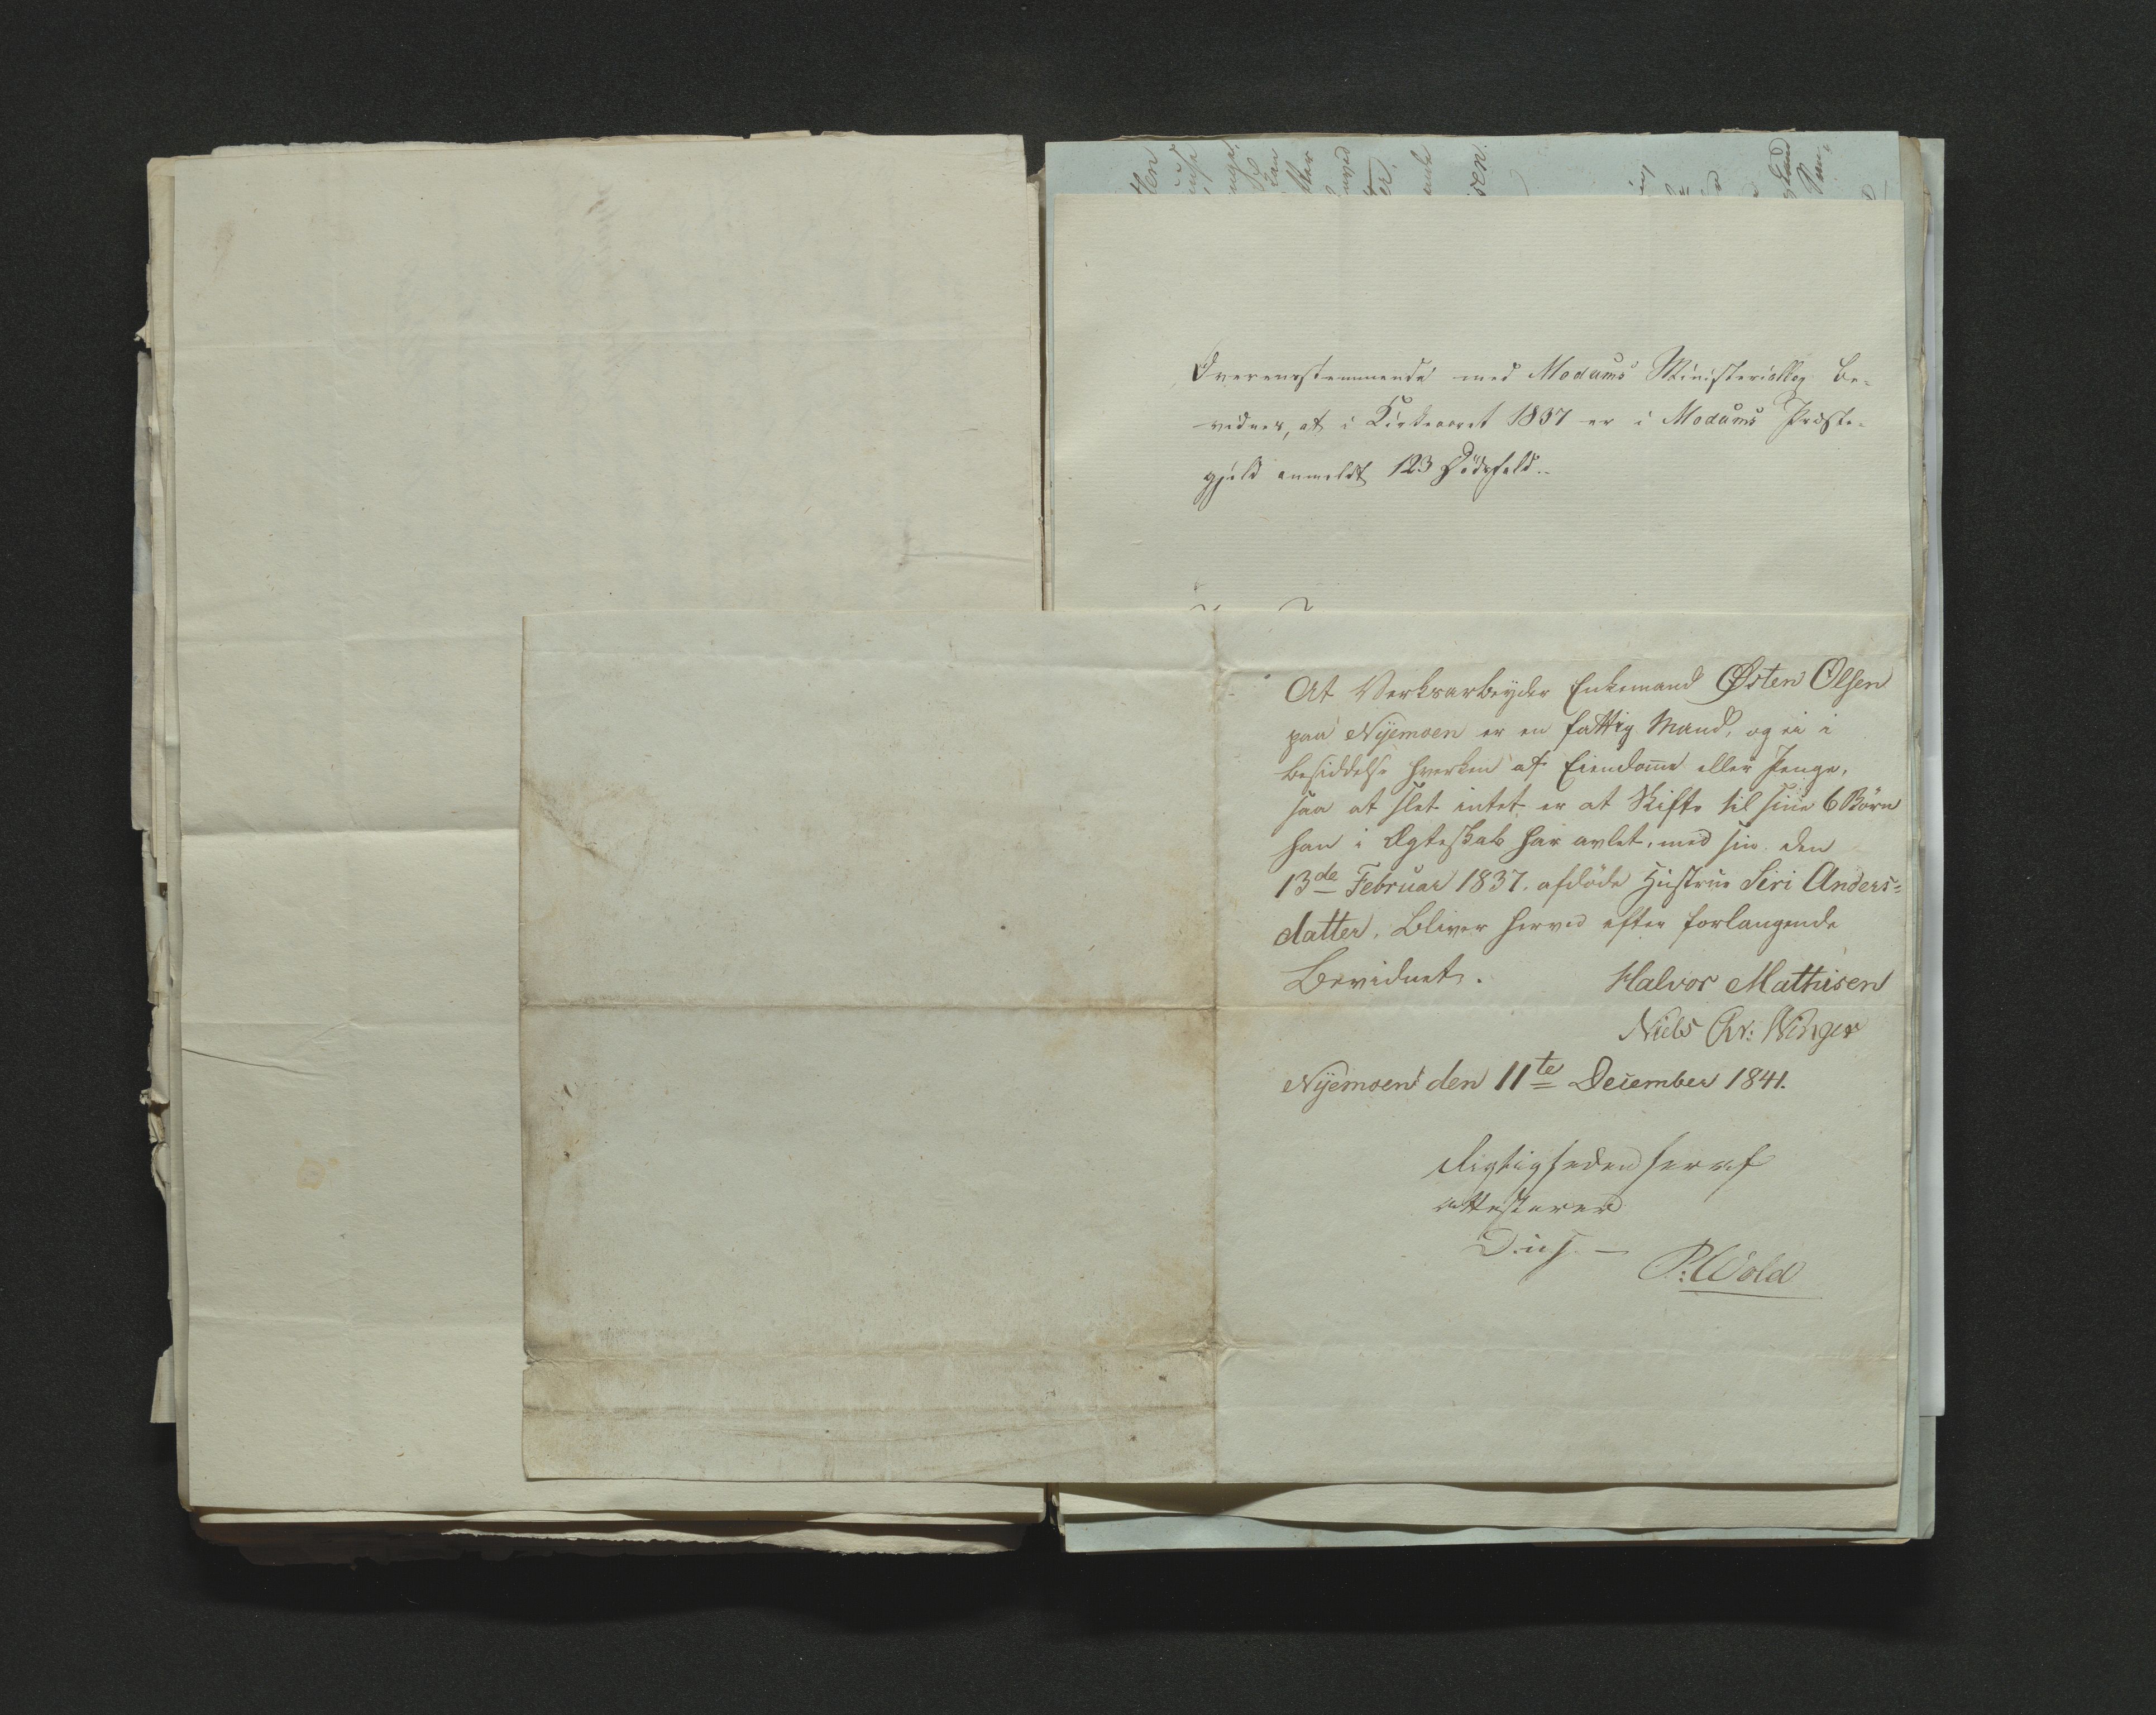 Overensstemmende med Modums Ministerialbog be-
vidnes, at i Kirkeaaret 1837 er i Modums Præste-
gjeld anmeldt 123 Dödsfald..
At Verksarbeyder Enkemand Østen Olsen
paa Nyemoen er en fattig Mand, og ei i
besiddelse hverken af Eiendomme eller Penge,
saa at slet intet er at Skifte til sine 6 Börn
han i Ægteskab har avlet, med sin den
13de Februar 1837. afdöde Hustrue Siri Anders=
datter. bliver herved efter forlangende
Bevidnet.
Halvor Mathisen
Niels Chr: Winger
Nyemoen den 11te December 1841.
Rigtigheden heraf
attesterer
P: Wold